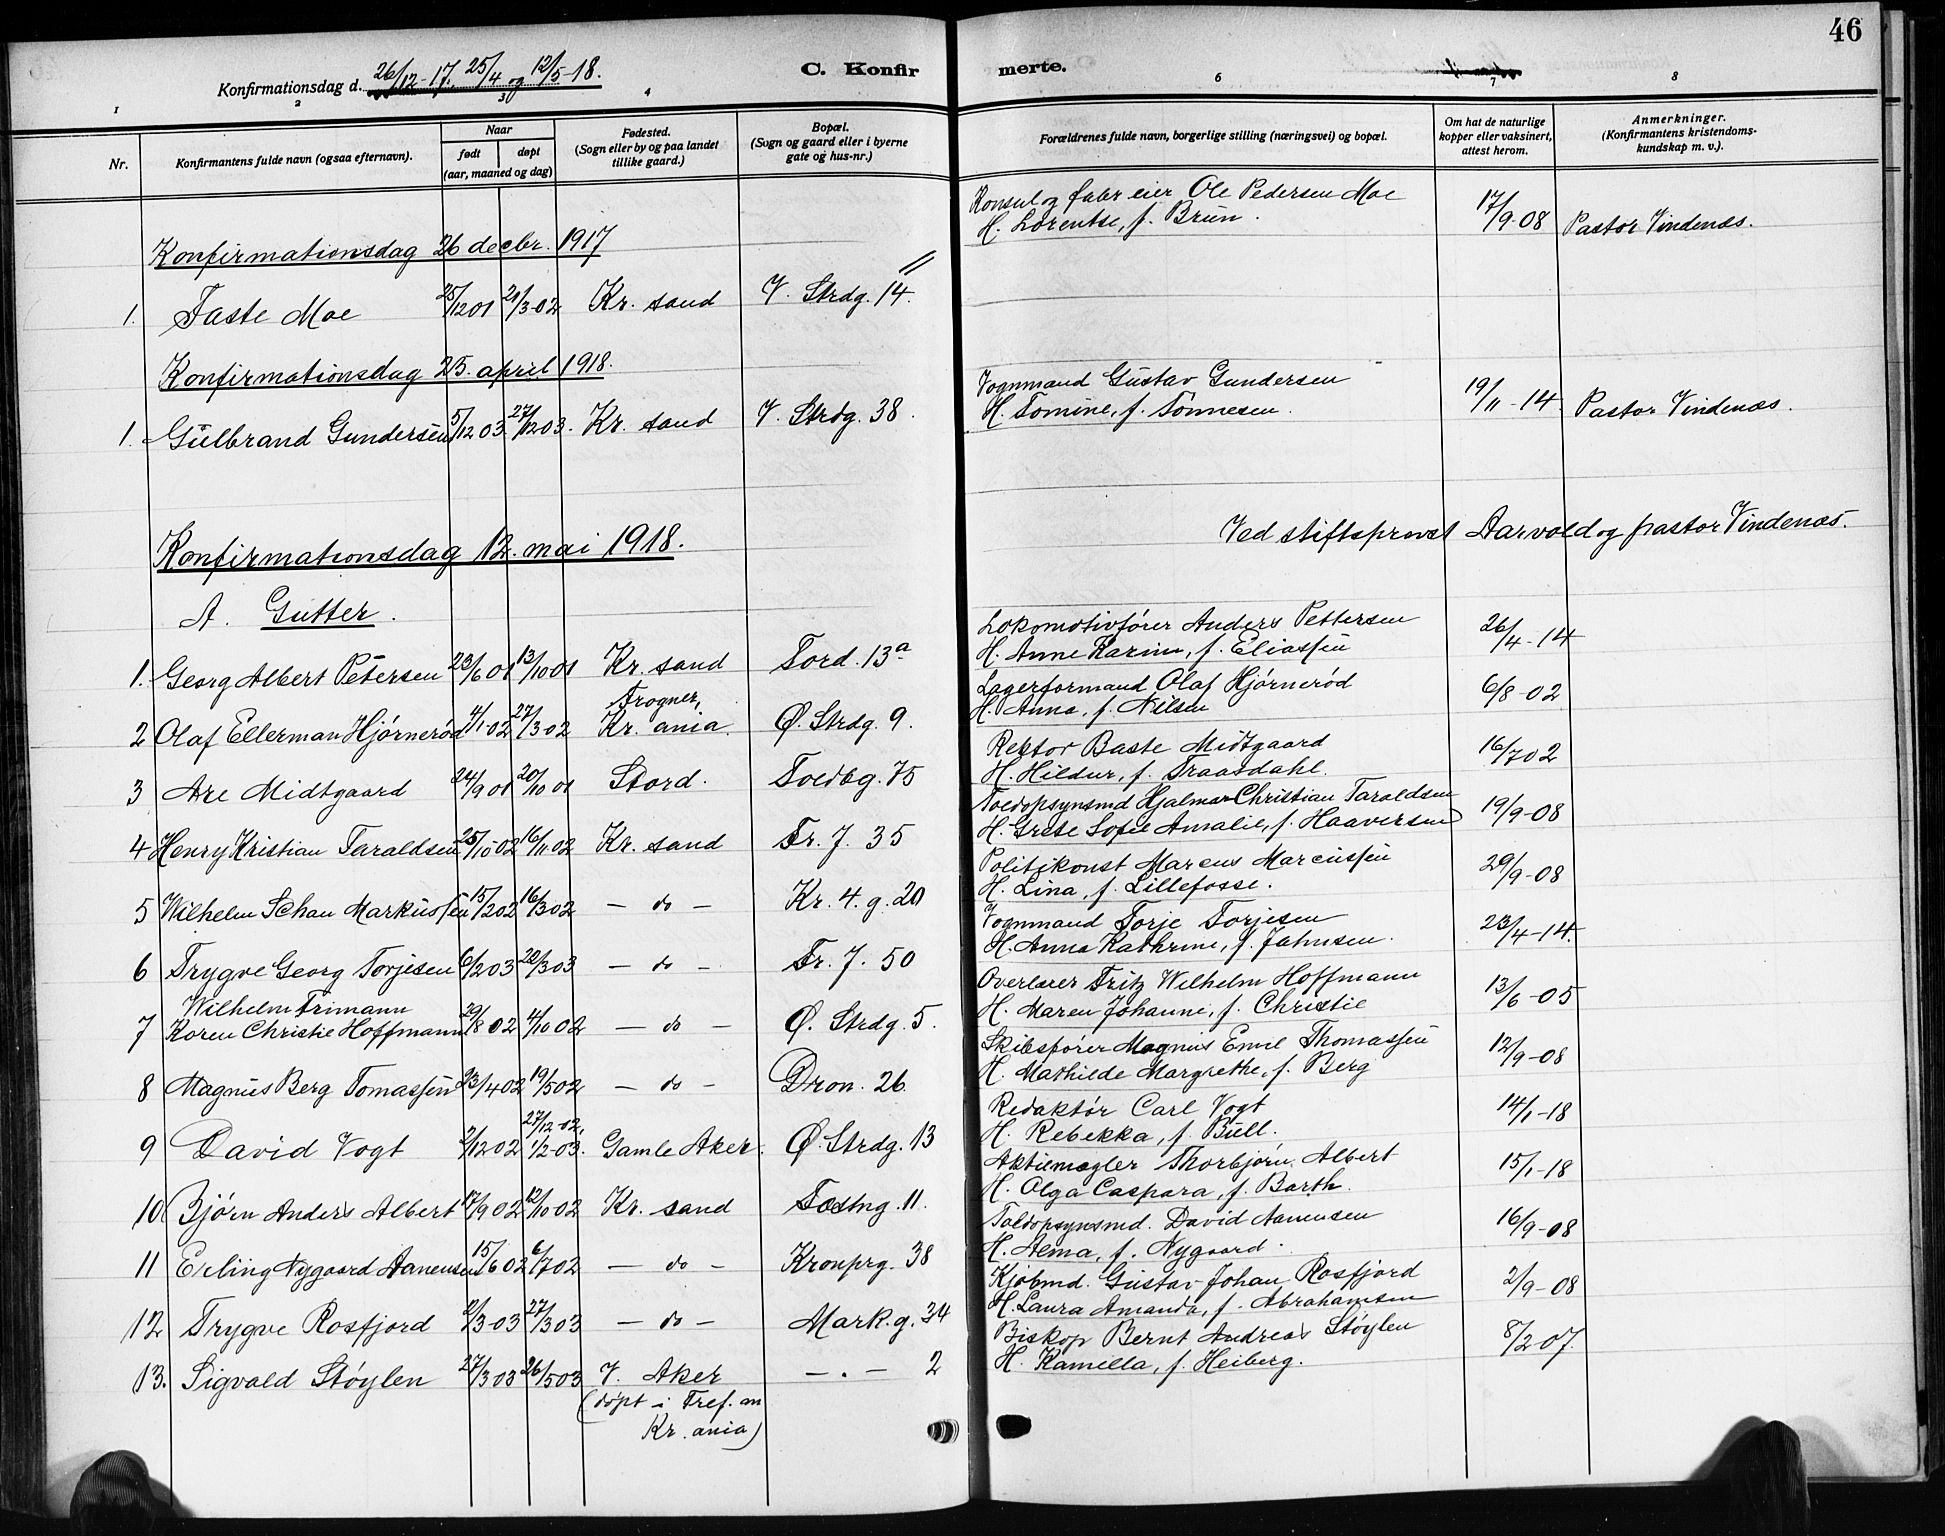 46
Konfirmationsdag d. 26/12-17, 25/4 og 12/5-18.
C. Konfir merte.
1 2 3 4 6 7 8
Nr.
Konfirmantens fulde navn (ogsaa efternavn).
Naar
født døpt
(aar, maaned og dag)
Fødested.
(Sogn eller by og paa landet
tillike gaard.)
Bopæl.
(Sogn og gaard eller i byerne
gate og hus-nr.)
Forældrenes fulde navn, borgerlige stilling (næringsvei) og bopæl.
Om hat de naturlige
kopper eller vaksinert,
attest herom.
Anmerkninger.
(Konfirmantens kristendoms-
kundskap m. v.).
Konfirmationsdag 26 decbr. 1917
1. Taste Moe 25/12 01 21/3-02 Kr. sand V. Strdg. 14.
Konsul og fabr eier Ole Pedersen Moe 17/9-08 Pastor Vindenæs.
H. Lorentse, f. Brun.
Konfirmationsdag 25. april 1918.
1. Gulbrand Gundersen 5/12 03 27/12 03. Kr. sand V. Strdg. 38.
Vognmand Gustav Gundersen 19/11-14 Pastor Vindenæs.
H. Tomine, f. Tønnesen.
Konfirmationsdag 12. mai 1918.
Ved stiftsprovst Aarvold og pastor Vindenæs.
A. Gutter.
1. Georg Albert Petersen 23/6 01 13/10 01 Kr. sand Tord. 13a
Lokomotivfører Anders Pettersen 26/4-14
H. Anne Karine, f. Eliassen
2 Olaf Ellerman Hjørnerød 4/1-02 27/3 02 Frogner, Kr. ania. Ø. Strdg. 9.
Lagerformand Olaf Hjørnerød 6/8-02
H. Anna, f. Nilsen
3 Are Midtgaard 24/9 01 20/10 01 Stord. Toldbg. 75
Rektor Baste Midtgaard 16/7 02
H. Hildur, f. Traasdahl.
4 Henry Kristian Taraldsen 25/10 02 16/11 02 Kr. sand Fr. 7. 35
Toldopsynsmd Hjalmar Christian Taraldsen 19/9-08
H. Grete Sofie Amalie, f. Haaversen
5 Wilhelm Schau Markussen 15/2 02 16/3 02 — do — Kr. 4. g. 20
Politikonst Marcus Marcussen 29/9-08
H. Lina, f. Lillefosse.
6 Trygve Georg Torjesen 6/2 03 22/3 03 — do — Fr. 7. 50
Vognmand Torje Torjesen 23/4-14.
H. Anna Kathrine, f. Jahnsen.
7 Wilhelm Frimann
Koren Christie Hoffmann 29/8 02 4/10 02 — do — Ø. Strdg. 5.
Overlærer Fritz Wilhelm Hoffmann 13/6-05
H. Maren Johanne, f. Christie
8 Magnus Berg Tomassen 23/4 02 19/5 02 — do — Dron. 26.
Skibsfører Magnus Emil Thomassen 12/9-08
H. Mathilde Margrethe, f. Berg
9 David Vogt 2/12 02 27/12-02, 1/2-03. Gamle Aker. Ø. Strdg. 13
Redaktør Carl Vogt 14/1-18
H. Rebekka, f. Bull.
10 Bjørn Anders Albert 17/9 02 12/10 02 Kr. sand Fæstng. 11.
Aktiemægler Thorbjørn Albert 15/1-18
H. Olga Caspara, f. Barth.
11 Erling Nygaard Aanensen 15/6 02 6/7 02 — do — Kronprg. 38
Toldopsynsmd. David Aanensen 16/9-08
H. Alma, f. Nygaard.
12 Trygve Rosfjord 2/3-03 27/3 03 — do — Mark. g. 34
Kjøbmd. Gustav Johan Rosfjord 2/9-08
H. Laura Amanda, f. Abrahamsen
13. Sigvald Støylen 27/3 03 26/5 03 V. Aker — . — 2
Biskop Bernt Andreas Støylen 8/2 07.
H. Kamilla, f. Heiberg.
(døpt i Tref. en
Kr. ania)